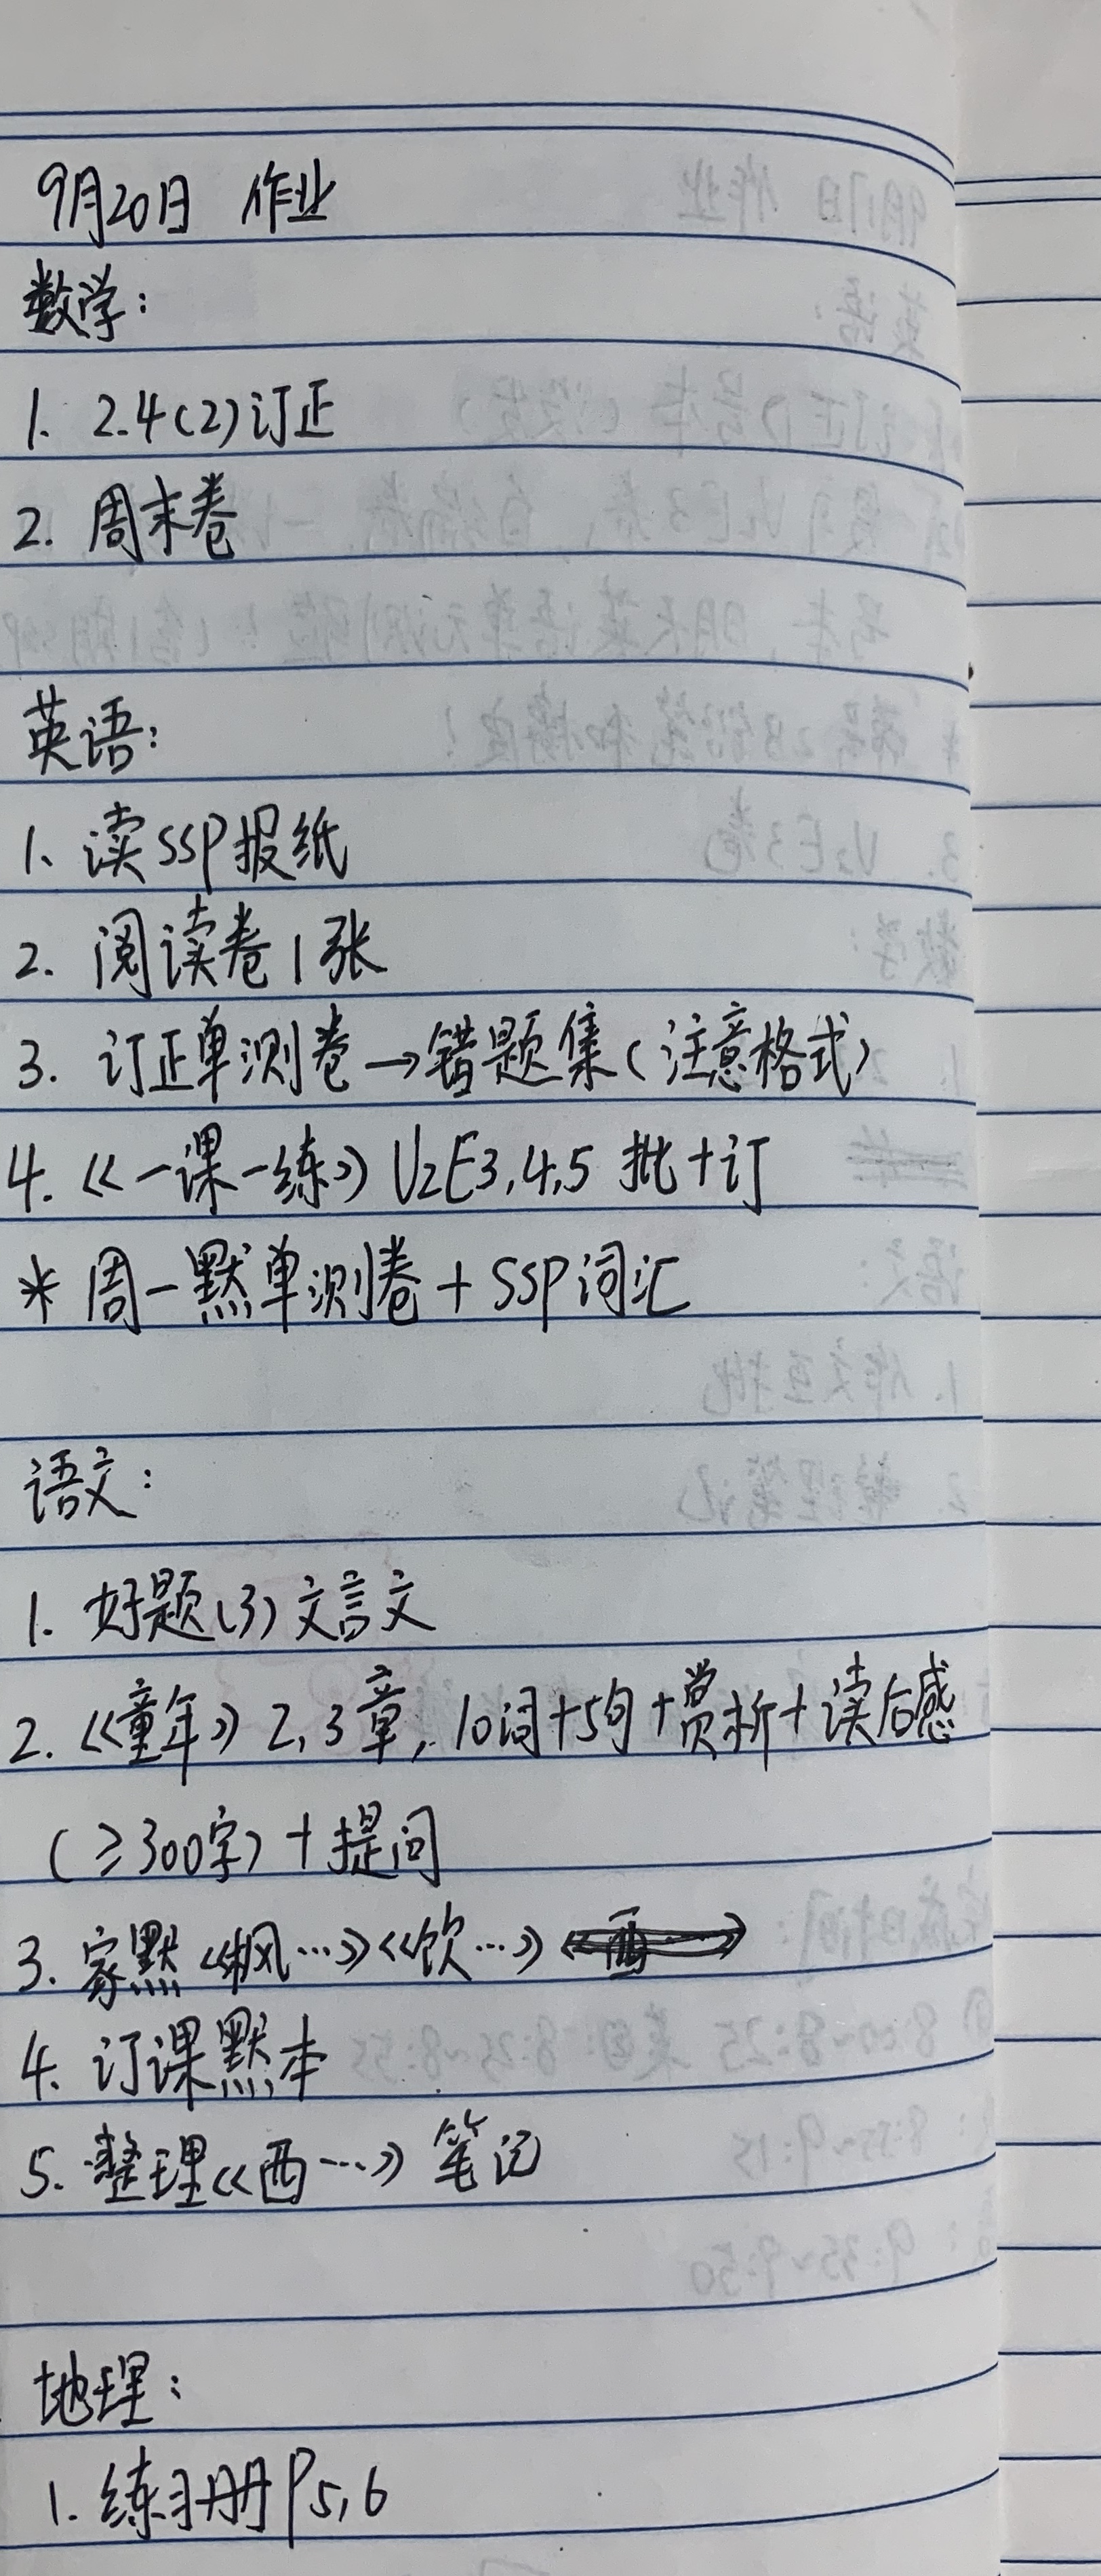 9月20日 作业
数学：
1. 2.4(2)订正
2. 周末卷
英语：
1、读SSP报纸
2. 阅读卷1张
3. 订正单测卷→错题集(注意格式)
4.《一课一练》U2E3,4,5 批+订
* 周一默单测卷+SSP词汇
语文：
1. 好题(3)文言文
2.《童年》2,3章, 10词+5句+赏析+读后感
(≥300字)+提问
3. 家默《枫…》《饮…》
4. 订课默本
5. 整理《西…》笔记
地理：
1. 练习册P5,6